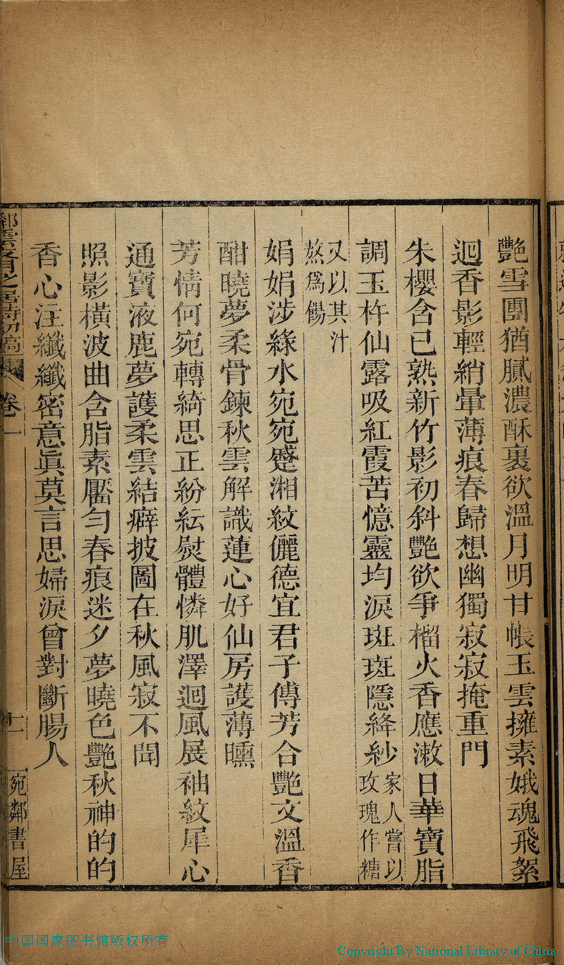 艷雪團猶膩濃酥裹欲溫月明甘帳玉雲擁素娥魂飛絮
迴香影輕綃暈薄痕春歸想幽獨寂寂掩重門
朱櫻含已熟新竹影初斜艷欲爭榴火香應漱日華寶脂
調玉杵仙露吸紅霞苦憶靈均淚斑斑隱絳紗家人嘗以玫瑰作糖
又以其汁熬為餳
娟娟涉緣水宛宛蹙湘紋儷德宜君子傳芳合艷文溫香
酣曉夢柔骨鍊秋雲解識蓮心好仙房護薄曛
芳情何宛轉綺思正紛紜熨體憐肌澤迴風展袖紋犀心
通寶液鹿夢護柔雲結癖披圖在秋風寂不聞
照影橫波曲含脂素靨勻春痕迷夕夢曉色艷秋神的的
香心注纖纖密意眞莫言思婦淚曾對斷腸人
卷一
宛鄰書屋
中国国家图书馆版权所有
Copyright By National Library of China